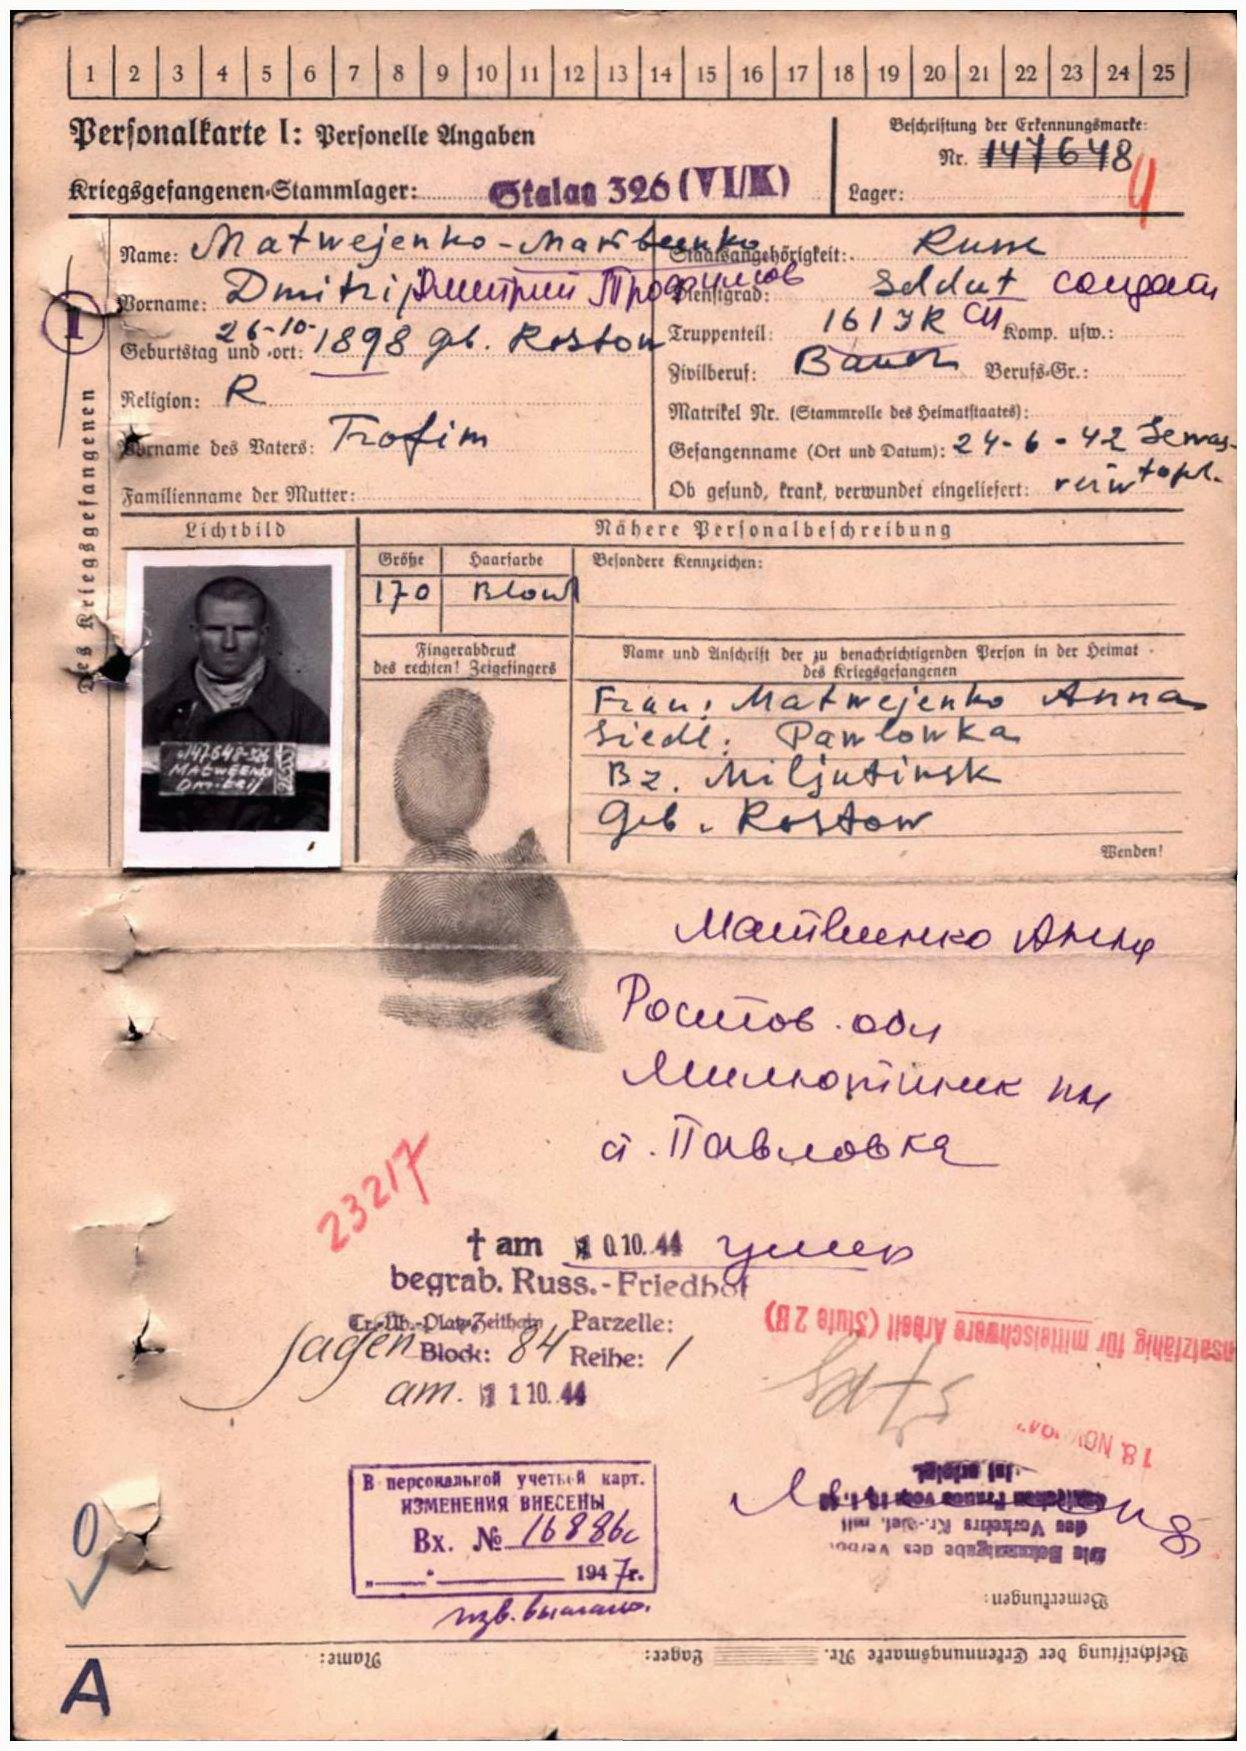 1 2 3 4 5 6 7 8 9 10 11 12 13 14 15 16 17 18 19 20 21 22 23 24 25
Personalkarte I: Personelle Angaben
Kriegsgefangenen-Stammlager: Stalag 326 (VI/K)
Beschriftung der Erkennungsmarke:
Nr. 147648
Lager:
Des Kriegsgefangenen
I
Name: Matwejenko -
Vorname: Dmitrij Дмитрий Трофимов
Geburtstag und -ort: 26-10-1898 Geb. Rostow
Religion: R
Vorname des Vaters: Trofim
Familienname der Mutter:
Staatsangehörigkeit: Russe
Dienstgrad: Soldat солдат
Truppenteil: 161 JR СП Komp. usw.:
Zivilberuf: Bauer Berufs-Gr.:
Matrikel Nr. (Stammrolle des Heimatstaates):
Gefangenname (Ort und Datum): 24-6-42 Sewas-
topl.
Ob gesund, krank, verwundet eingeliefert:
Lichtbild
147648-326
MATWEENKO
DMITRIJ
Nähere Personalbeschreibung
Größe Haarfarbe Besondere Kennzeichen:
170 Blond
Fingerabdruck
des rechten! Zeigefingers
Name und Anschrift der zu benachrichtigenden Person in der Heimat
des Kriegsgefangenen
Frau: Matwejenko Anna
Siedl: Pawlowka
Bz. Miljutinsk
Geb. Rostow
Wenden!
Матвиенко Анна
Ростов. обл
Милютинск
с. Павловка
23217
† am 10.10.44 умер
begrab. Russ.-Friedhof
Tr.-Üb.-Platz Zeithain Parzelle:
Jagen Block: 84 Reihe: 1
am. 11 10.44
Einsatzfähig für mittelschwere Arbeit (Stufe 2 B)
18. NOV. 194
В персональной учетной карт.
ИЗМЕНЕНИЯ ВНЕСЕНЫ
Вх. № 16886с
1947г.
изв. выслано.
ist erfolgt.
des Verkehrs Kr.-Gef. mit
Die Bekanntgabe des Verbots
Bemerkungen:
Beschriftung der Erkennungsmarke Nr. Lager: Name:
A